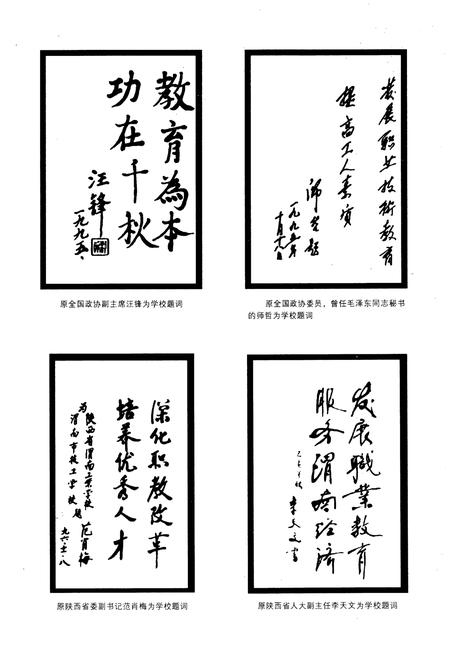 教育為本
功在千秋
汪锋
一九九五.
原全国政协副主席汪锋为学校题词
发展职业技術教育
提高工人素质
师哲题
一九九五年
十月十八日
原全国政协委员，曾任毛泽东同志秘书
的师哲为学校题词
深化职教改革
培养优秀人才
为陕西省渭南工业学校
渭南市技工学校题
范肖梅
原陕西省委副书记范肖梅为学校题词
发展職業教育
服务渭南经济
李天文书
原陕西省人大副主任李天文为学校题词